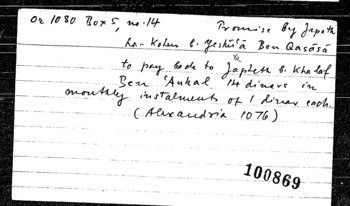 Or 1080 Box 5, no. 14 Promise by Japheth
ha-Kohen b. Yeshū'ā Ben Qaṣāṣā
to pay back to Japheth b. Khalaf
Ben 'Aukal 14 dinars in
monthly instalments of 1 dinar each.
(Alexandria 1076)
100869